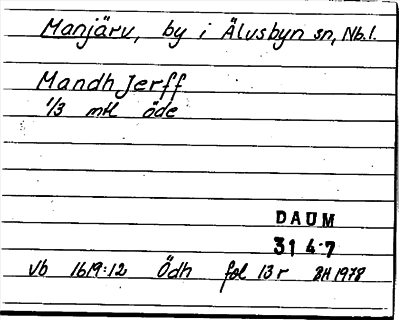 Manjärv, by i Älvsbyn sn, Nb.l.
Mandh Jerff
1/3 mtl öde
DAUM
31 4-7
vb 1619:12 Ödh fol 13 r BH 1978